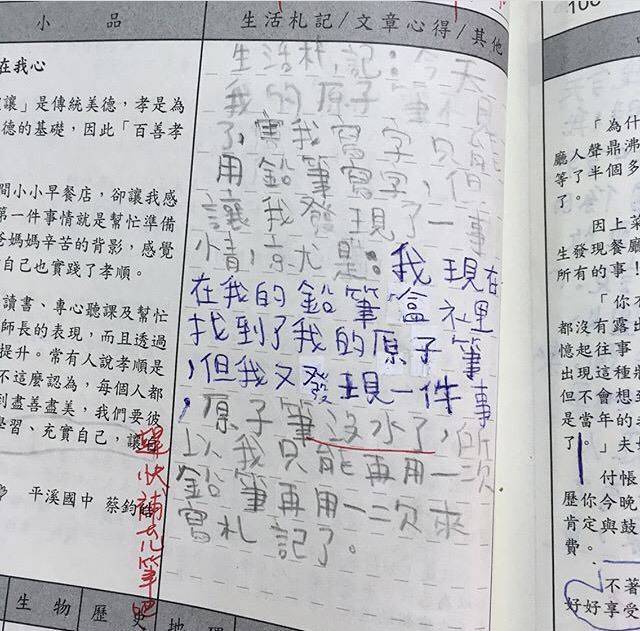 小 品
在我心
讓」是傳統美德，孝是為
德的基礎，因此「百善孝
間小小早餐店，卻讓我感
第一件事情就是幫忙準備
爸媽媽辛苦的背影，感覺
自己也實踐了孝順。
讀書、專心聽課及幫忙
師長的表現，而且透過
提升。常有人說孝順是
不這麼認為，每個人都
到盡善盡美，我們要彼
學習、充實自己，讓
平溪國中 蔡鈞
趕快補充筆吧
生活札記/文章心得/其他
生活札記：今天
我的原子筆不見
了，害我寫字只能
用鉛筆寫字，但
讓我發現了一事
情，就是：我現在
在我的鉛筆盒裡
找到了我的原子筆
，但我又發現一件事
，原子筆沒水了，所
以我只能再用一次
鉛筆再用一二次來
寫札記了。
生物 歷史 地理
100
「為什
廳人聲鼎沸
等了半個多
了。
因上菜
生發現餐廳
所有的事！
「你
都沒有露出
憶起往事
出現這種狀
但不會想到
是當年的老
了。」夫
付帳
歷你今晚
肯定與鼓
費。
不著
好好享受